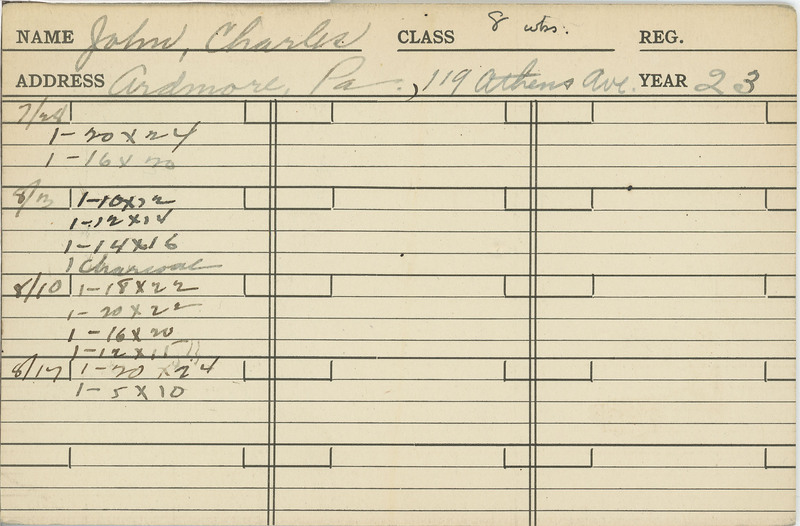 NAME John, Charles CLASS 8 wks. REG.
ADDRESS Ardmore, Pa., 119 Athens Ave. YEAR 23
7/28
1-20x24
1-16x20
8/3 1-10x12
1-12x14
1-14x16
1 Charcoal
8/10 1-18x22
1-20x22
1-16x20
1-12x15
8/17 1-20x24
1-5x10